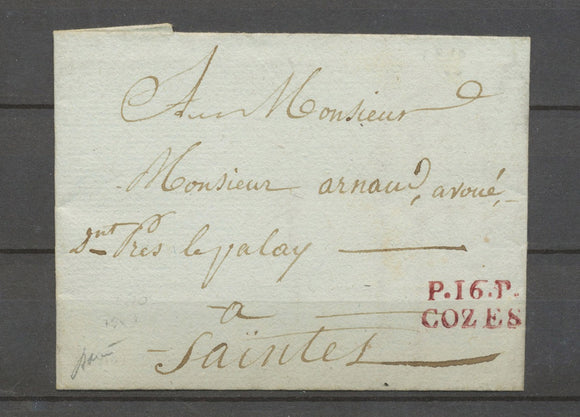 A Monsieur
Monsieur arnaud, avoué,
Dnt Près le palay
a
Saintes
P.16.P.
COZES